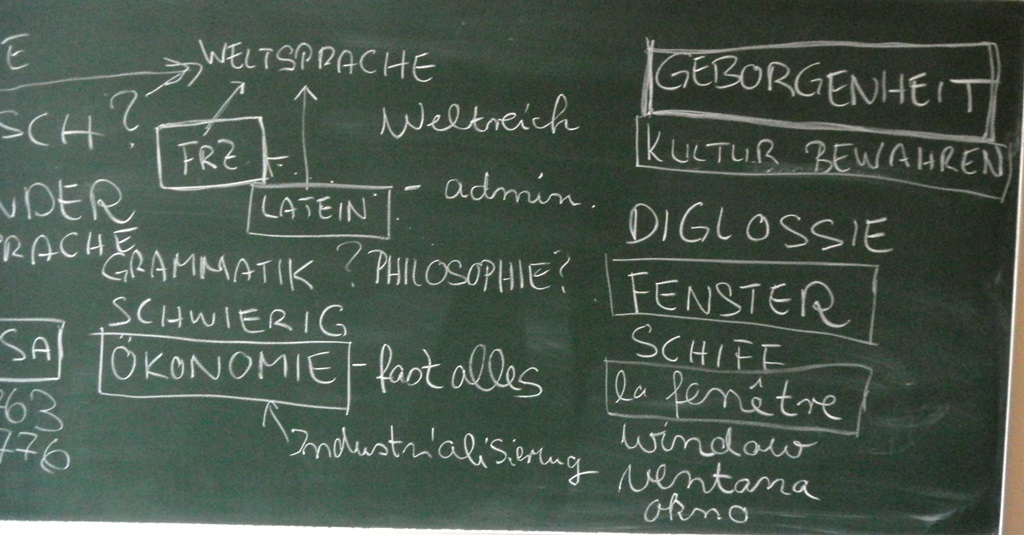 E
WELTSPRACHE
SCH?
FRZ
Weltreich
LATEIN - admin.
NDER
PRACHE
GRAMMATIK ? PHILOSOPHIE?
SCHWIERIG
SA
ÖKONOMIE - fast alles
763
776
Industrialisierung
GEBORGENHEIT
KULTUR BEWAHREN
DIGLOSSIE
FENSTER
SCHIFF
la fenêtre
window
ventana
okno